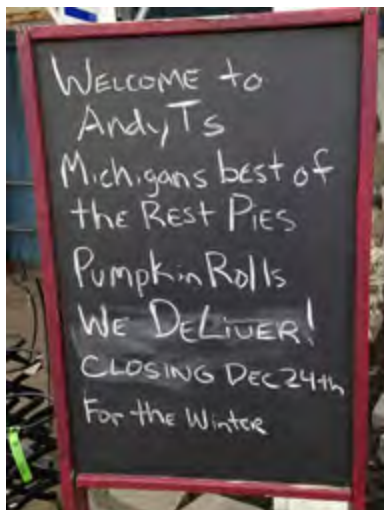 WELCOME to
Andy Ts
Michigans best of
the REST PIES
Pumpkin Rolls
WE DELIVER!
CLOSING DEC 24th
For the WINTER